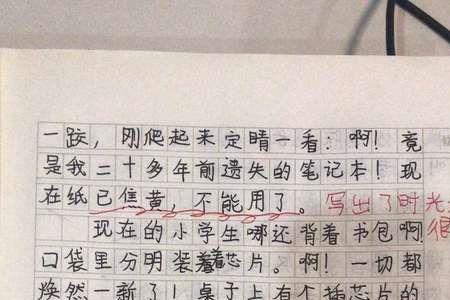 一跤，刚爬起来定睛一看：啊！竟
是我二十多年前遗失的笔记本！现
在纸已焦黄，不能用了。写出了时光
很
现在的小学生哪还背着书包啊
口袋里分明装着芯片。啊！一切都
焕然一新了！桌子上有个插芯片的